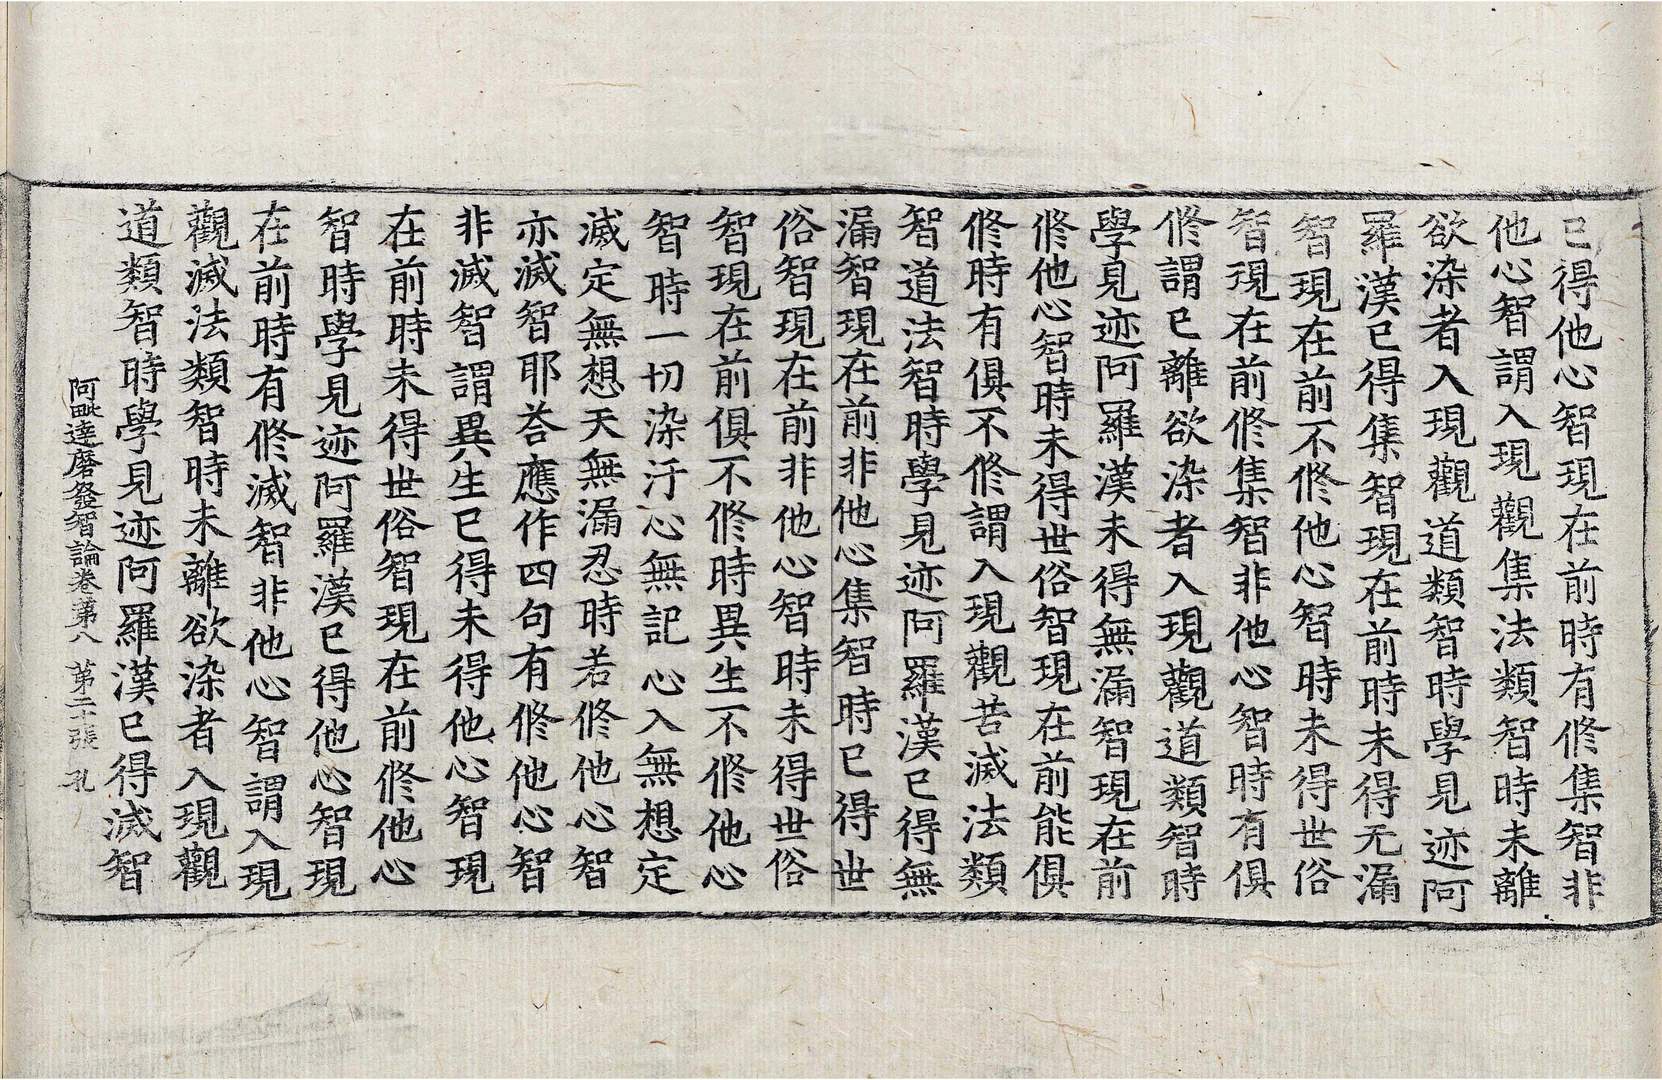 已得他心智現在前時有修集智非
他心智謂入現觀集法類智時未離
欲染者入現觀道類智時學見迹阿
羅漢已得集智現在前時未得无漏
智現在前不修他心智時未得世俗
智現在前修集智非他心智時有俱
修謂已離欲染者入現觀道類智時
學見迹阿羅漢未得無漏智現在前
修他心智時未得世俗智現在前能俱
修時有俱不修謂入現觀苦滅法類
智道法智時學見迹阿羅漢已得無
漏智現在前非他心集智時已得世
俗智現在前非他心智時未得世俗
智現在前俱不修時異生不修他心
智時一切染汙心無記心入無想定
滅定無想天無漏忍時若修他心智
亦滅智耶荅應作四句有修他心智
非滅智謂異生已得未得他心智現
在前時未得世俗智現在前修他心
智時學見迹阿羅漢已得他心智現
在前時有修滅智非他心智謂入現
觀滅法類智時未離欲染者入現觀
道類智時學見迹阿羅漢已得滅智
阿毗達磨發智論卷第八 第二十張 孔